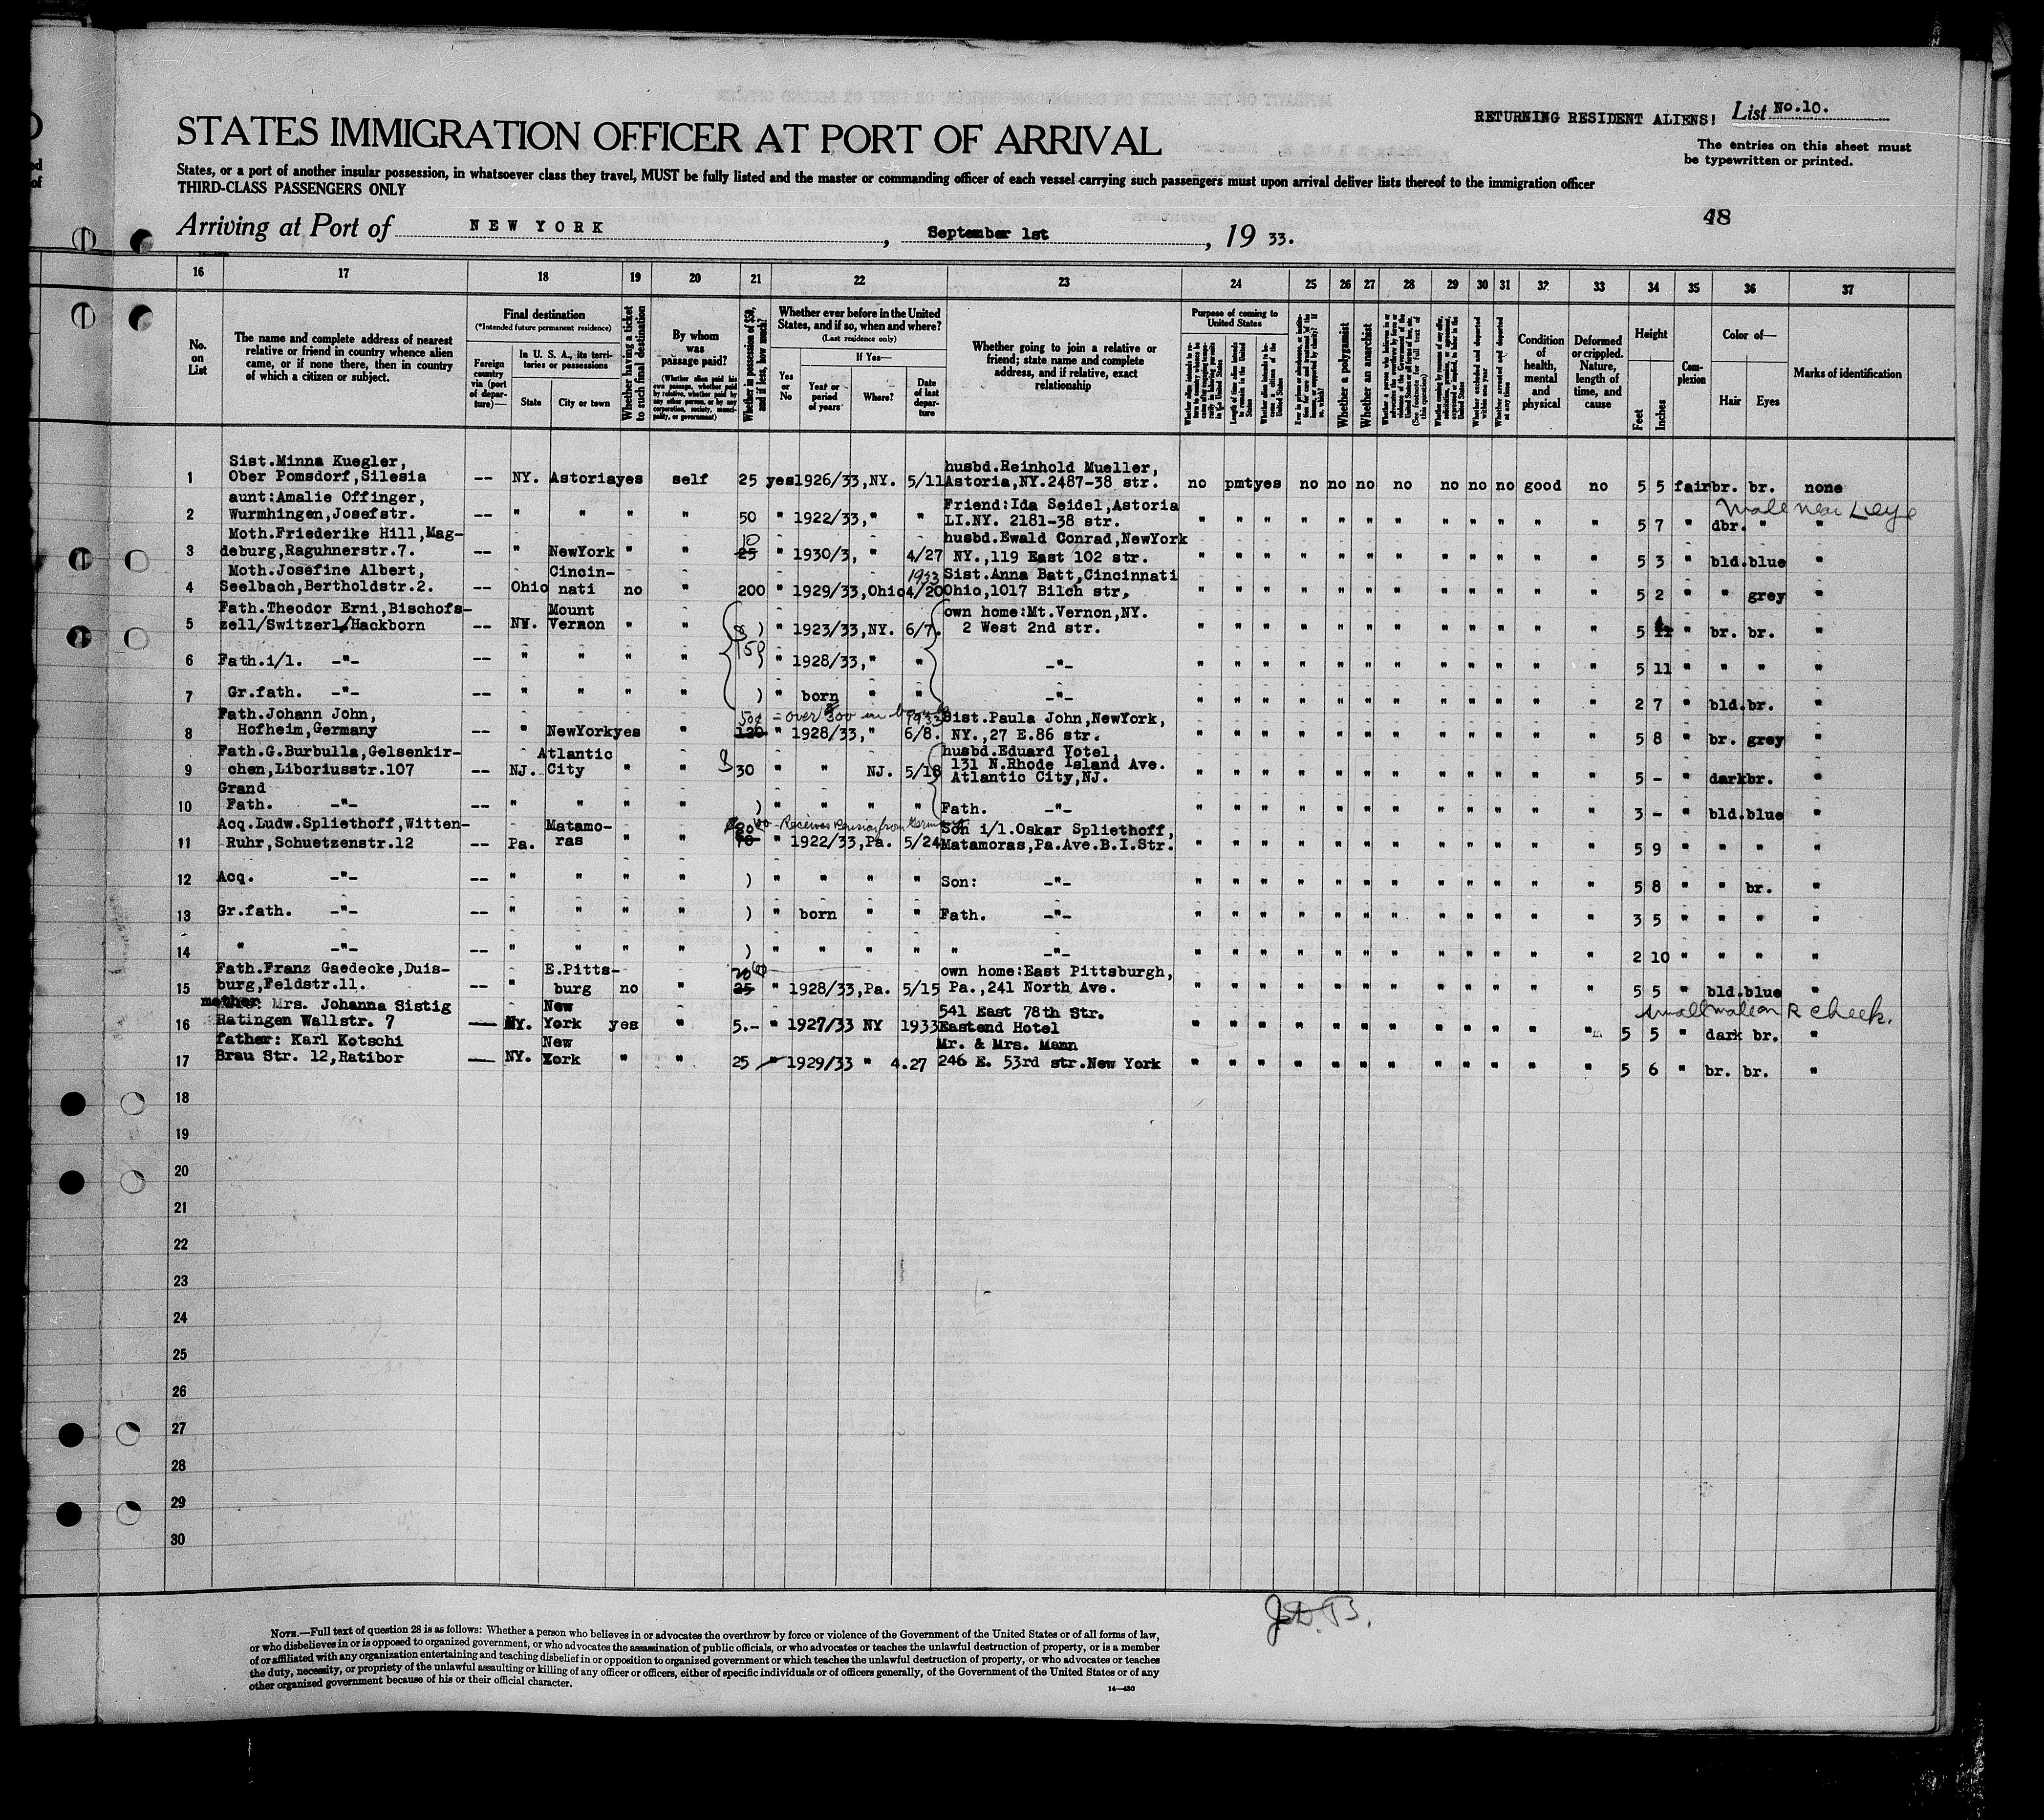 RETURNING RESIDENT ALIENS! List No.10.
STATES IMMIGRATION OFFICER AT PORT OF ARRIVAL
The entries on this sheet must
be typewritten or printed.
States, or a port of another insular possession, in whatsoever class they travel, MUST be fully listed and the master or commanding officer of each vessel carrying such passengers must upon arrival deliver lists thereof to the immigration officer
THIRD-CLASS PASSENGERS ONLY
48
Arriving at Port of NEW YORK, September 1st, 19 33.
16 17 18 19 20 21 22 23 24 25 26 27 28 29 30 31 32 33 34 35 36 37
No. on List
The name and complete address of nearest
relative or friend in country whence alien
came, or if none there, then in country
of which a citizen or subject.
Final destination
(*Intended future permanent residence)
Foreign country via (port of departure)—
In U. S. A., its territories or possessions
State
City or town
Whether having a ticket to such final destination
By whom was passage paid?
(Whether alien paid his own passage, whether paid by relative, whether paid by any other person, or by any corporation, society, municipality, or government)
Whether in possession of $50, and if less, how much?
Whether ever before in the United States, and if so, when and where?
(Last residence only)
Yes or No
If Yes—
Year or period of years
Where?
Date of last departure
Whether going to join a relative or
friend; state name and complete
address, and if relative, exact
relationship
Purpose of coming to United States
Whether a polygamist
Whether an anarchist
Condition of health, mental and physical
Deformed or crippled. Nature, length of time, and cause
Height
Feet
Inches
Complexion
Color of—
Hair
Eyes
Marks of identification
Sist.Minna Kuegler, husbd.Reinhold Mueller,
1 Ober Pomsdorf,Silesia -- NY. Astoria yes self 25 yes 1926/33,NY. 5/11 Astoria,NY.2487-38 str. no pmt yes no no no no no no no good no 5 5 fair br. br. none
aunt:Amalie Offinger, Friend:Ida Seidel,Astoria
2 Wurmhingen,Josefstr. -- " " " " 50 " 1922/33," " LI.NY. 2181-38 str. " " " " " " " " " " " " 5 7 " dbr. " "
Mole near L eye
Moth.Friederike Hill,Mag- 10 husbd.Ewald Conrad,NewYork
3 deburg,Raguhnerstr.7. -- " NewYork " " 25 " 1930/3, " 4/27 NY.,119 East 102 str. " " " " " " " " " " " " 5 3 " bld. blue "
Moth.Josefine Albert, Cincin- 1933 Sist.Anna Batt,Cincinnati
4 Seelbach,Bertholdstr.2. -- Ohio nati no " 200 " 1929/33,Ohio 4/20 Ohio,1017 Bilch str. " " " " " " " " " " " " 5 2 " " grey "
Fath.Theodor Erni,Bischofs- Mount own home:Mt.Vernon,NY.
5 zell/Switzerl/Hackborn -- NY. Vernon " " ) " 1923/33,NY. 6/7. 2 West 2nd str. " " " " " " " " " " " " 5 " br. br. "
6 Fath.i/l. -"- -- " " " " 150 ) " 1928/33," " -"- " " " " " " " " " " " " 5 11 " " " "
7 Gr.fath. -"- -- " " " " ) " born " " -"- " " " " " " " " " " " " 2 7 " bld. br. "
Fath.Johann John, 50¢ - over $300 in bank 1933 Sist.Paula John,NewYork,
8 Hofheim,Germany -- " NewYork yes " 120 " 1928/33," 6/8. NY.,27 E.86 str. " " " " " " " " " " " " 5 8 " br. grey "
Fath.G.Burbulla,Gelsenkir- Atlantic husbd.Eduard Votel,
9 chen,Liboriusstr.107 -- NJ. City " " $ 30 " " NJ. 5/18 131 N.Rhode Island Ave. " " " " " " " " " " " " 5 - " dark br. "
Atlantic City,NJ.
Grand
10 Fath. -"- -- " " " " ) " " " " Fath. -"- " " " " " " " " " " " " 3 - " bld. blue "
Acq.Ludw.Spliethoff,Witten- Matamo- - Receives pension from Germany Son i/l.Oskar Spliethoff,
11 Ruhr,Schuetzenstr.12 -- Pa. ras " " " 1922/33,Pa. 5/24 Matamoras,Pa.Ave.B.I.Str. " " " " " " " " " " " " 5 9 " " " "
12 Acq. -"- -- " " " " ) " " " " Son: -"- " " " " " " " " " " " " 5 8 " " br. "
13 Gr.fath. -"- -- " " " " ) " born " " Fath. -"- " " " " " " " " " " " " 3 5 " " " "
14 " -"- -- " " " " ) " " " " " -"- " " " " " " " " " " " " 2 10 " " " "
Fath.Franz Gaedecke,Duis- E.Pitts- 20 own home:East Pittsburgh,
15 burg,Feldstr.11. -- " burg no " 25 " 1928/33,Pa. 5/15 Pa.,241 North Ave. " " " " " " " " " " " " 5 5 " bld. blue "
mother Mrs. Johanna Sistig New 541 East 78th Str. small mole on R cheek.
16 Ratingen Wallstr. 7 — NY. York yes " 5.- " 1927/33 NY 1933 Eastend Hotel " " " " " " " " " " " " 5 5 " dark br. "
father: Karl Kotschi New Mr. & Mrs. Mann
17 Brau Str. 12,Ratibor — NY. York " " 25 " 1929/33 " 4.27 246 E. 53rd str.New York " " " " " " " " " " " " 5 6 " br. br. "
18
19
20
21
22
23
24
25
26
27
28
29
30
J.D.B.
NOTE.—Full text of question 28 is as follows: Whether a person who believes in or advocates the overthrow by force or violence of the Government of the United States or of all forms of law,
or who disbelieves in or is opposed to organized government, or who advocates the assassination of public officials, or who advocates or teaches the unlawful destruction of property, or is a member
of or affiliated with any organization entertaining and teaching disbelief in or opposition to organized government or which teaches the unlawful destruction of property, or who advocates or teaches
the duty, necessity, or propriety of the unlawful assaulting or killing of any officer or officers, either of specific individuals or of officers generally, of the Government of the United States or of any
other organized government because of his or their official character.
14—430